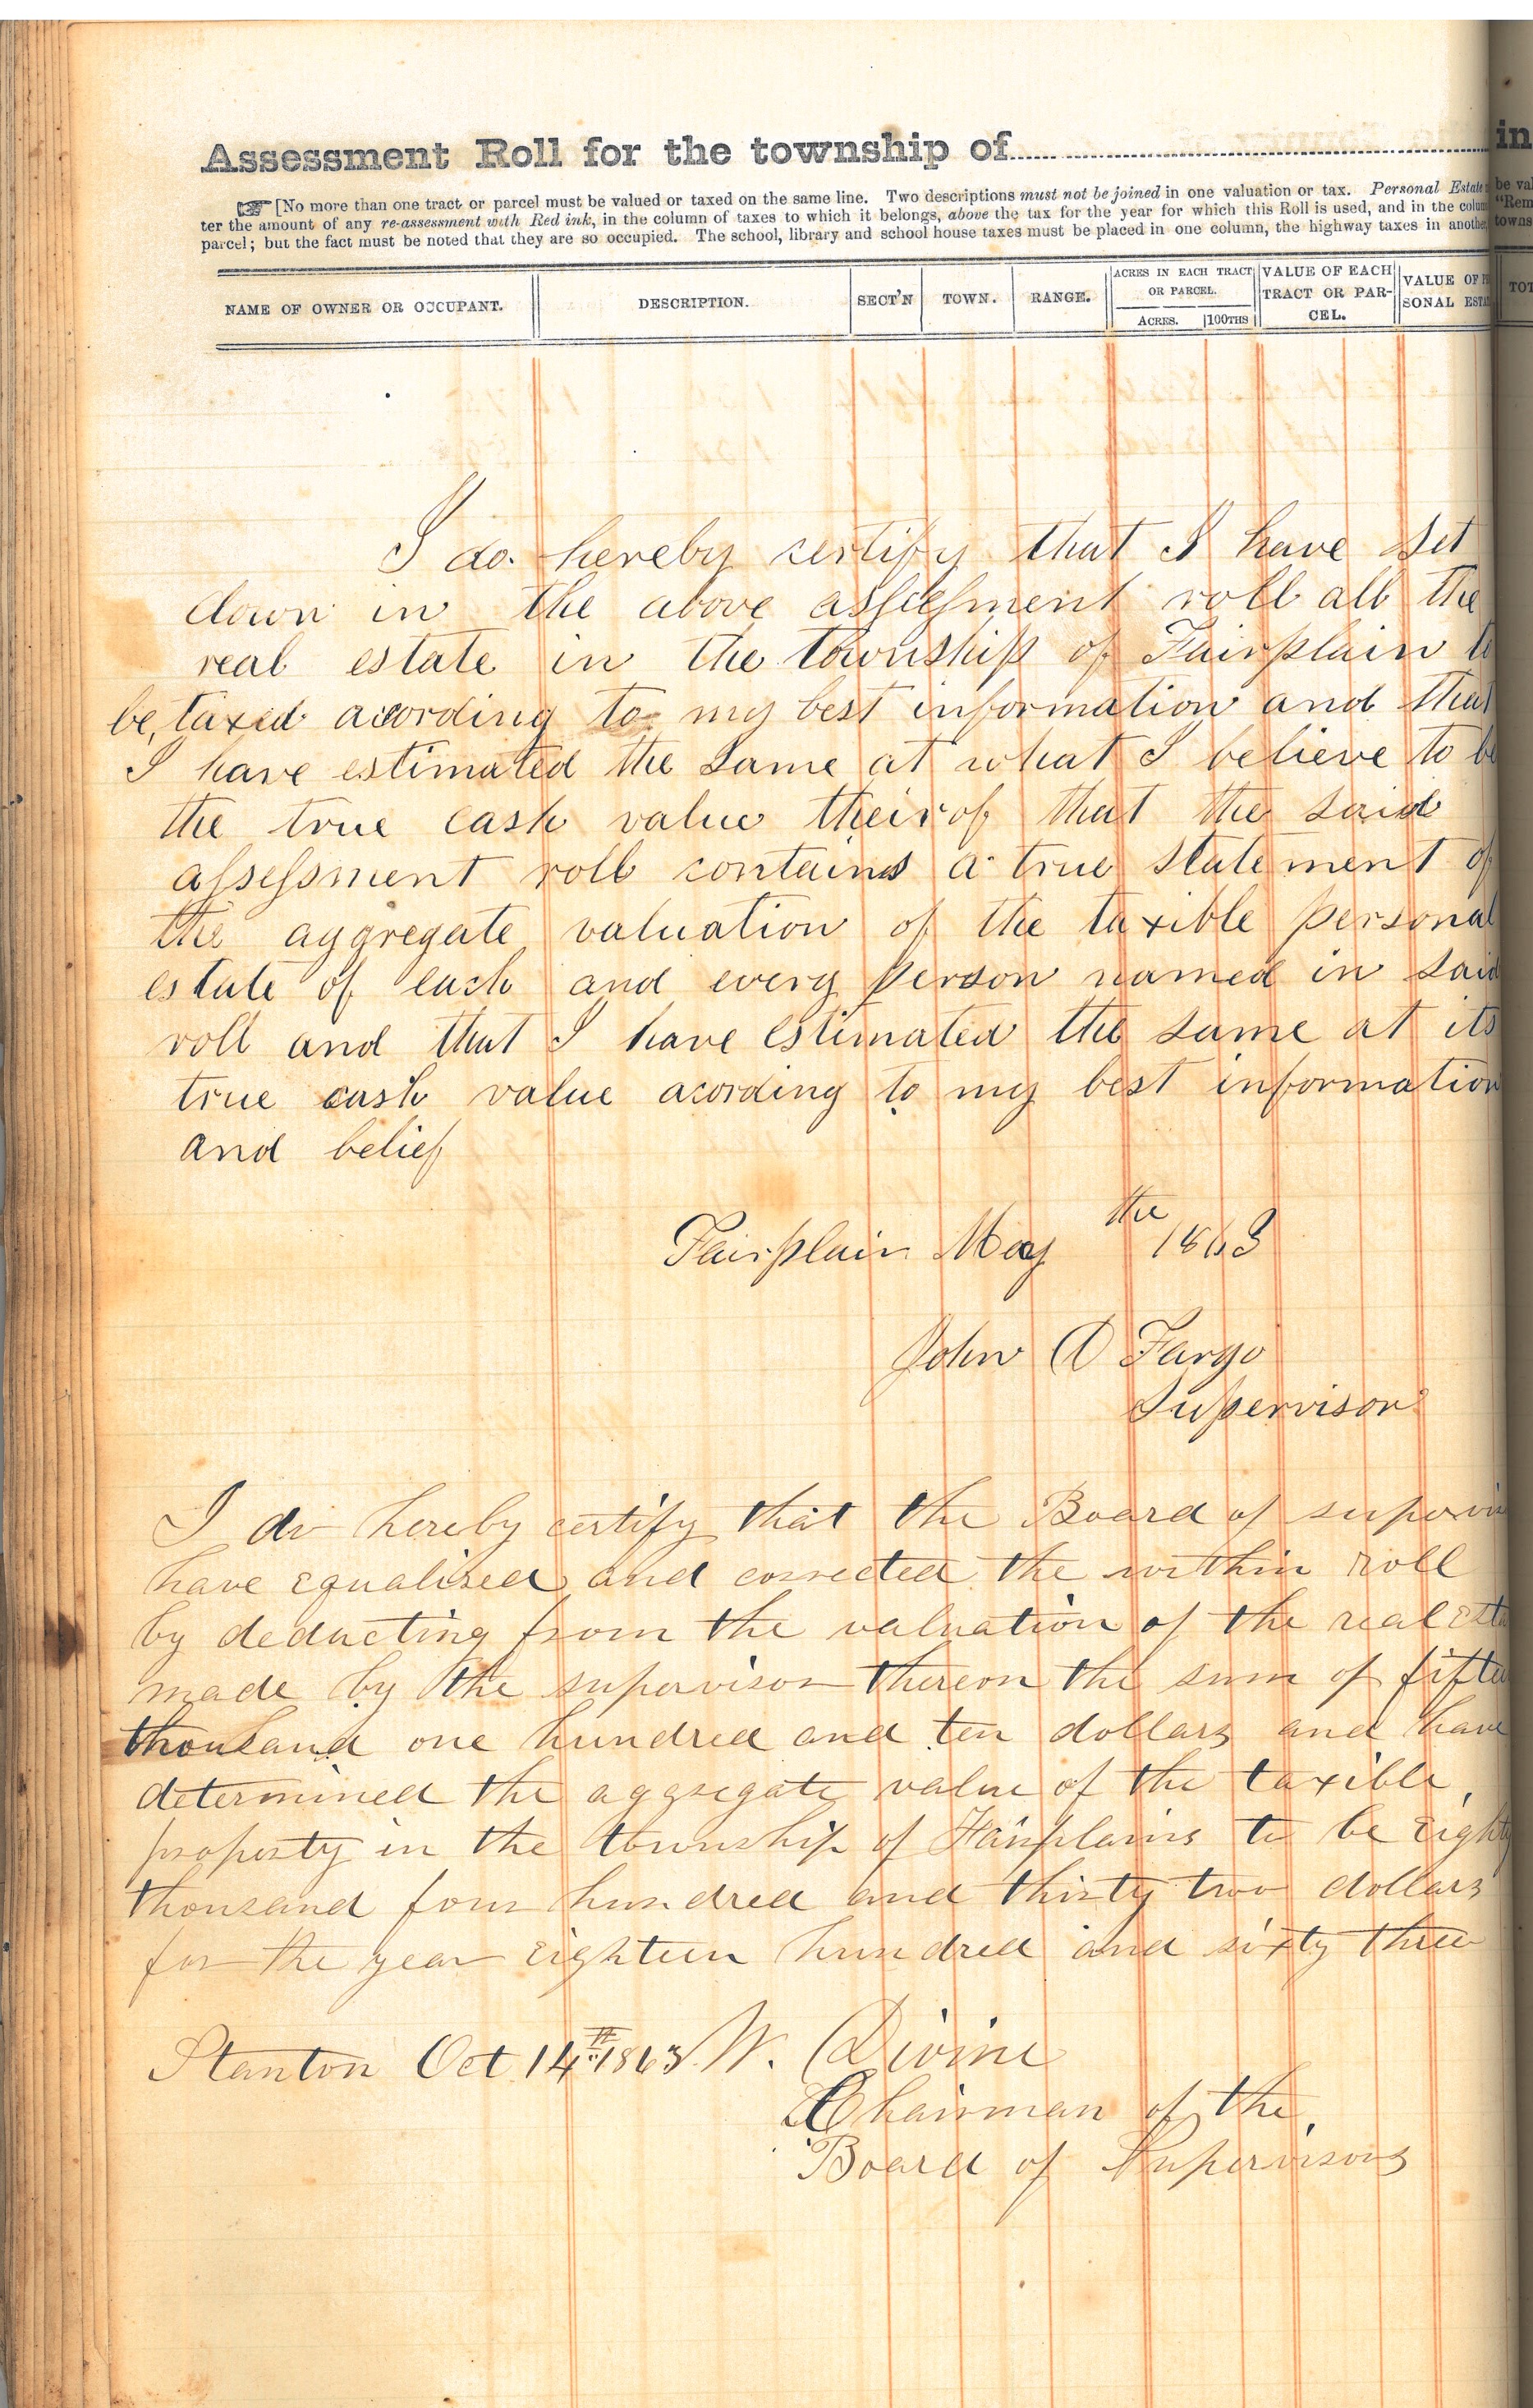 Assessment Roll for the township of
in
☞ [No more than one tract or parcel must be valued or taxed on the same line. Two descriptions must not be joined in one valuation or tax. Personal Estate
be val
ter the amount of any re-assessment with Red ink, in the column of taxes to which it belongs, above the tax for the year for which this Roll is used, and in the colum
"Rem
parcel; but the fact must be noted that they are so occupied. The school, library and school house taxes must be placed in one column, the highway taxes in another,
towns
NAME OF OWNER OR OCCUPANT.
DESCRIPTION.
SECT'N
TOWN.
RANGE.
ACRES IN EACH TRACT
OR PARCEL.
ACRES.
100THS
VALUE OF EACH
TRACT OR PAR-
CEL.
VALUE OF PE
SONAL ESTA
TOT
I do hereby certify that I have set
down in the above assessment roll all the
real estate in the township of Fairplain to
be, taxed acording to my best information and that
I have estimated the same at what I believe to be
the true cash value theirof that the said
assessment roll contains a true statement of
the aggregate valuation of the taxible personal
estate of each and every person named in said
roll and that I have estimated the same at its
true cash value acording to my best information
and belief
Fairplain May the 1863
John A Fargo
Supervisor
I do hereby certify that the Board of supervis
have equalised and corrected the within roll
by deducting from the valuation of the real esta
made by the supervisor thereon the sum of fiftee
thousand one hundred and ten dollars and have
determined the aggregate value of the taxible,
property in the township of Fairplains to be Eighty
thousand four hundred and thirty two dollars
for the year Eighteen hundred and sixty three
Stanton Oct 14th 1863 W. Divine
Chairman of the
Board of Supervisors